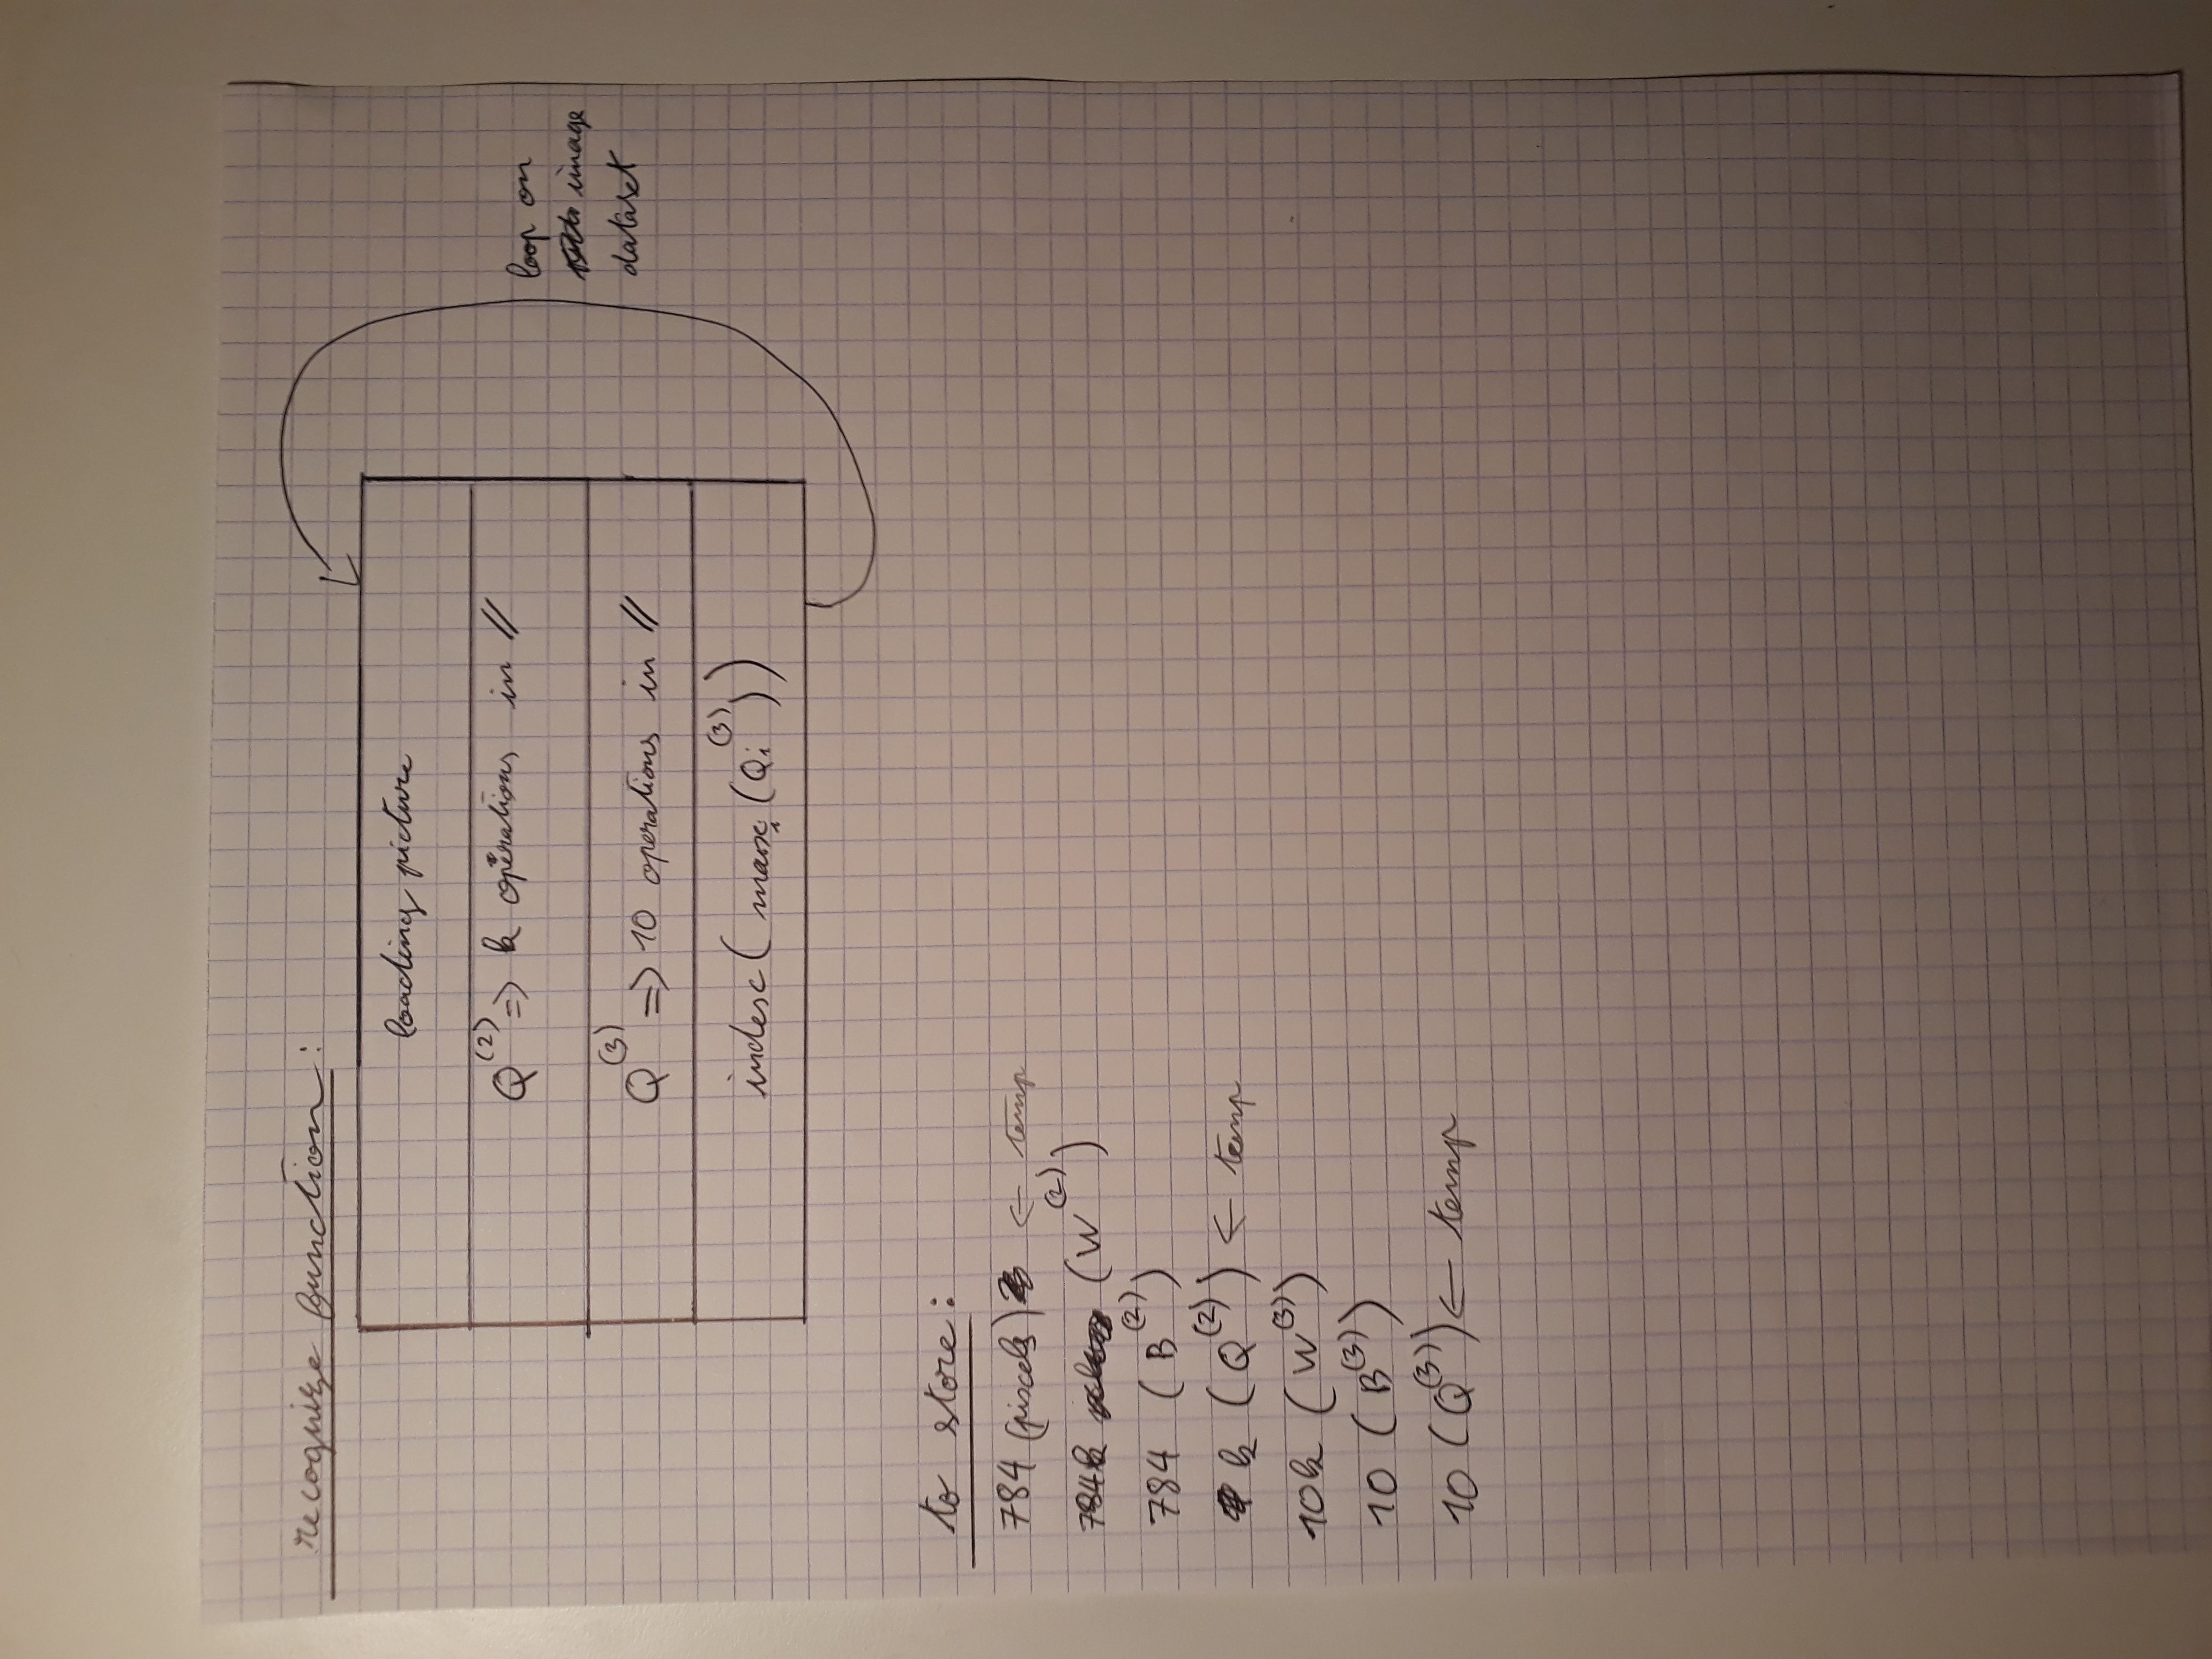 recognize function :
loading picture
Q^(2) => k operations in //
Q^(3) => 10 operations in //
index ( max_i (Q_i^(3)) )
loop on
image
dataset
to store :
784 (pixels) ← temp
784k (W^(2))
784 (B^(2))
k (Q^(2)) ← temp
10k (W^(3))
10 (B^(3))
10 (Q^(3)) ← temp